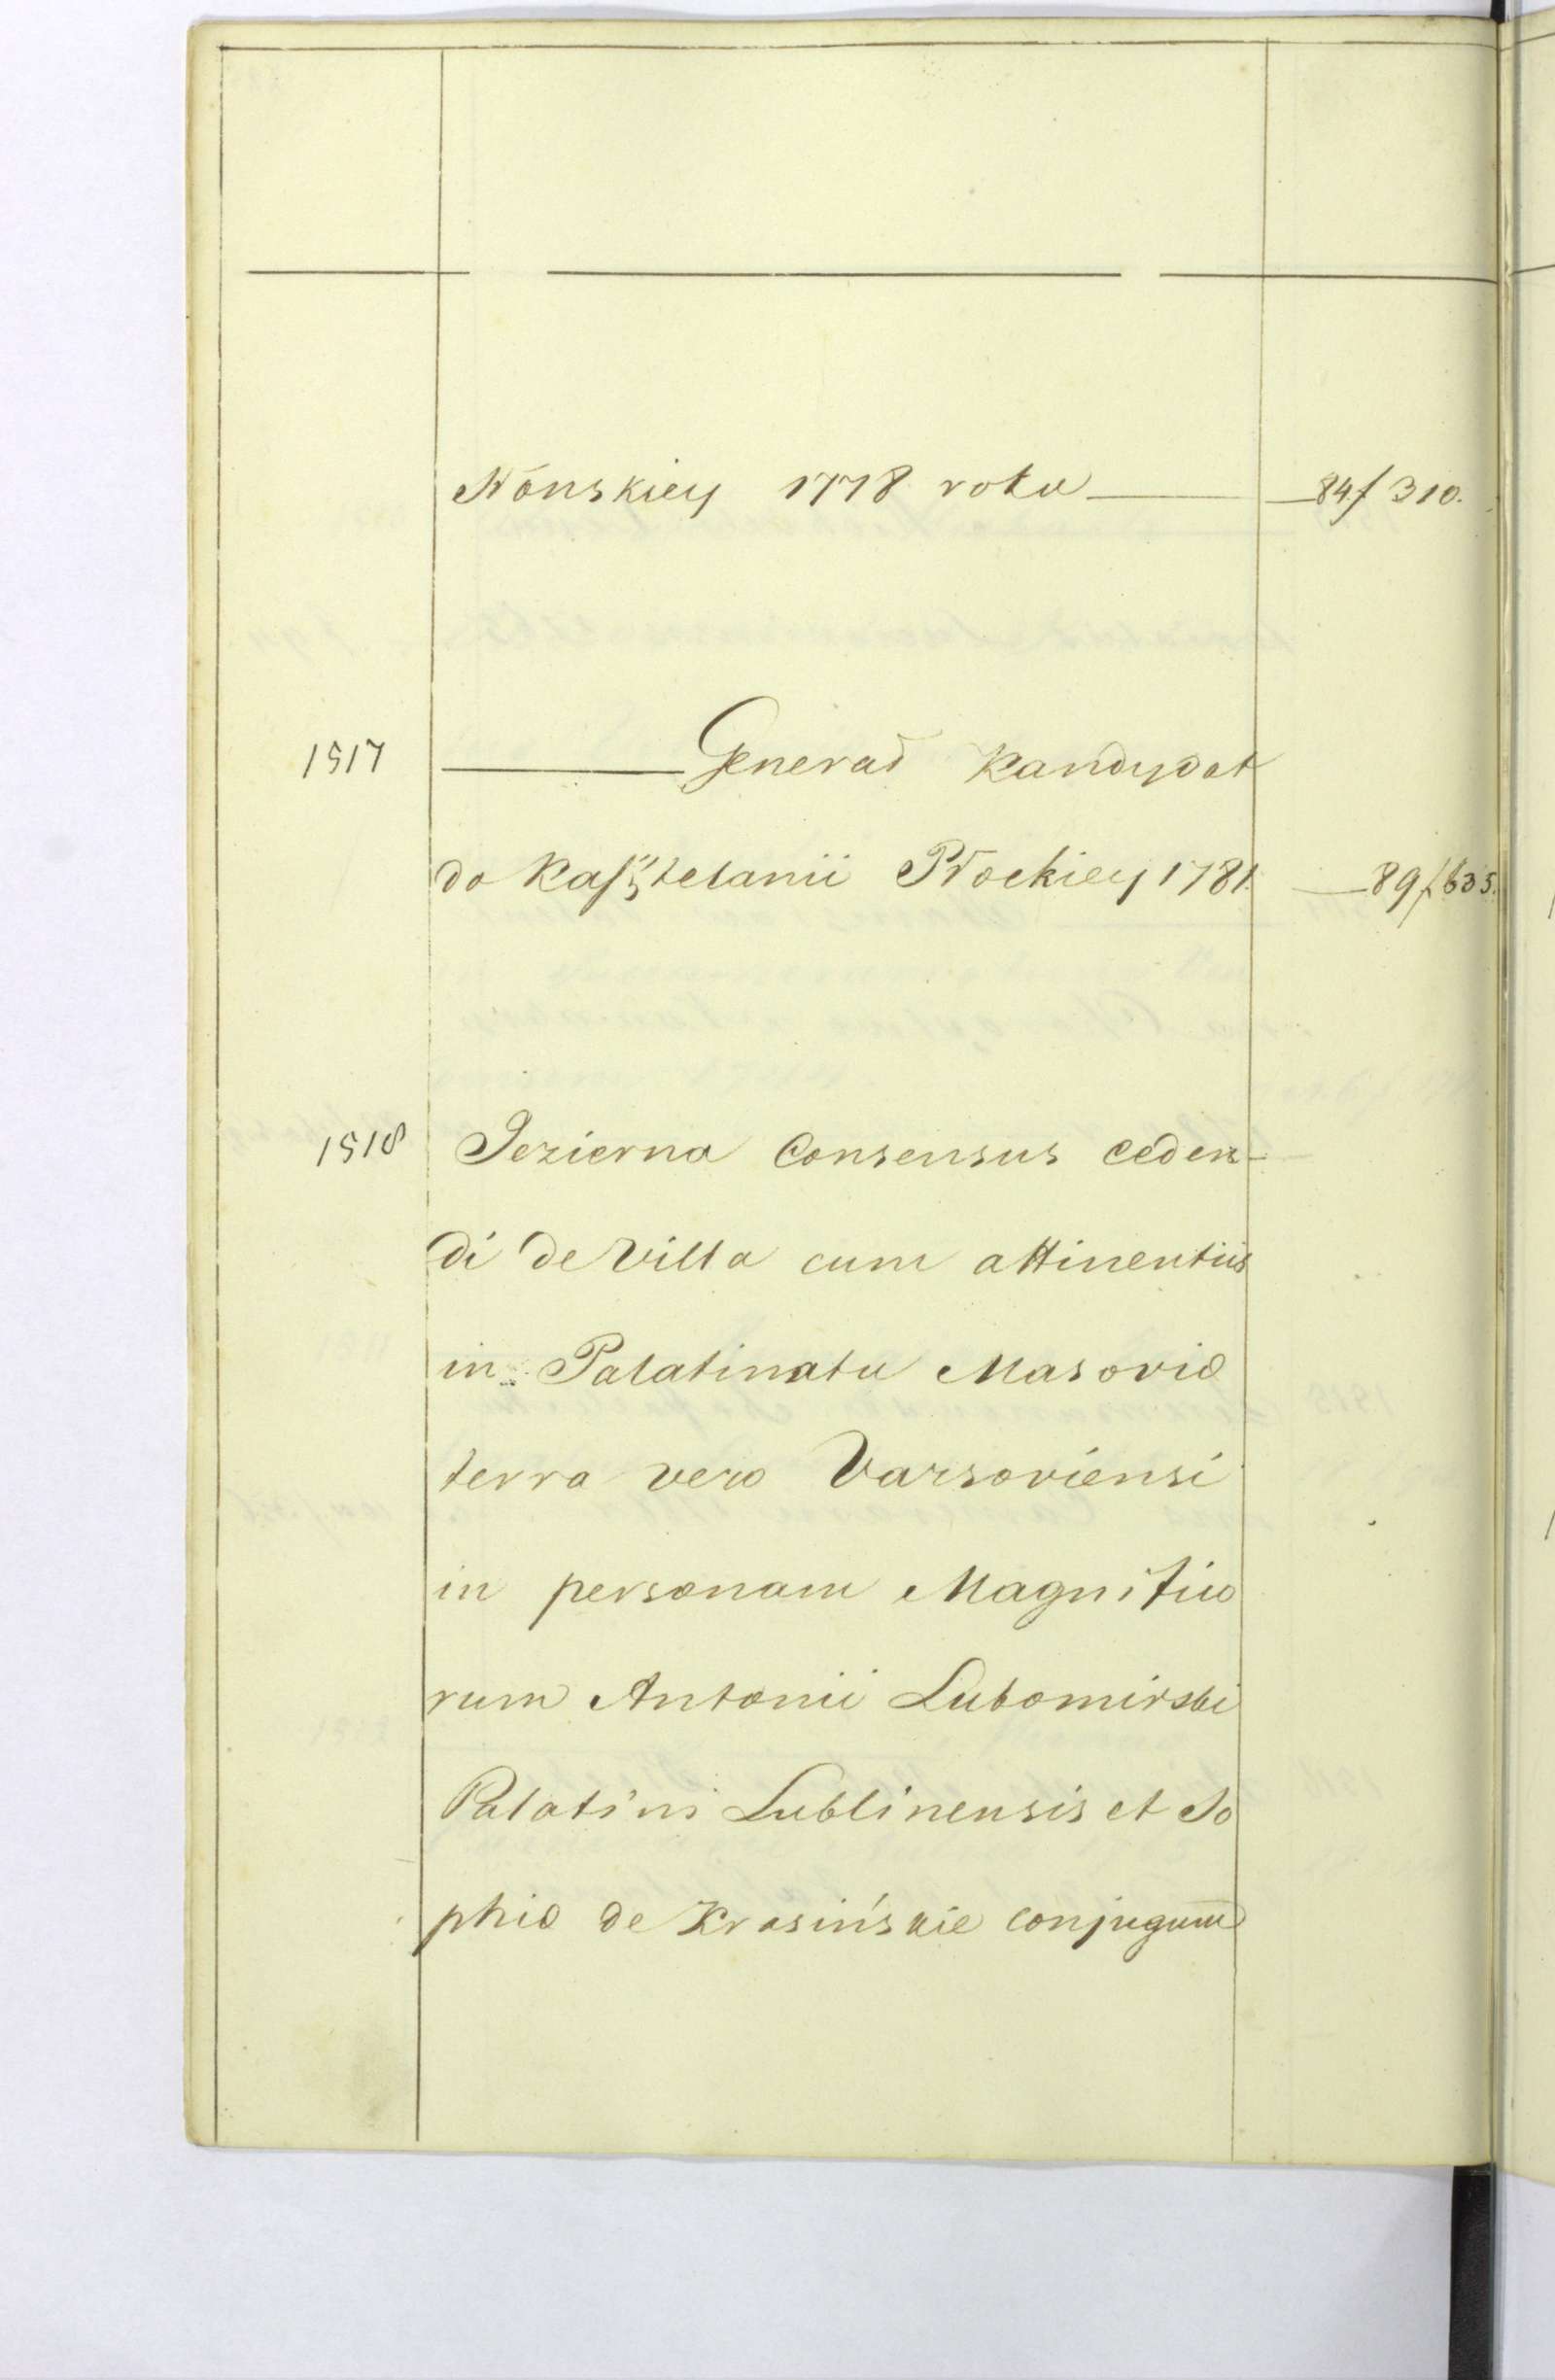 Nönskiey 1778 roku — 84f 310.
1517 — Generał Kandydat
do Kasztelanii Płockiey 1781. — 89f 635.
1518 Jezierna Consensus ceden-
di de Villa cum attinentiis
in Palatinatu Masoviæ
terra vero Varsoviensi
in personam Magnifico
rum Antonii Lubomirski
Palatini Lublinensis et So
phiæ de Krasińskie conjugum